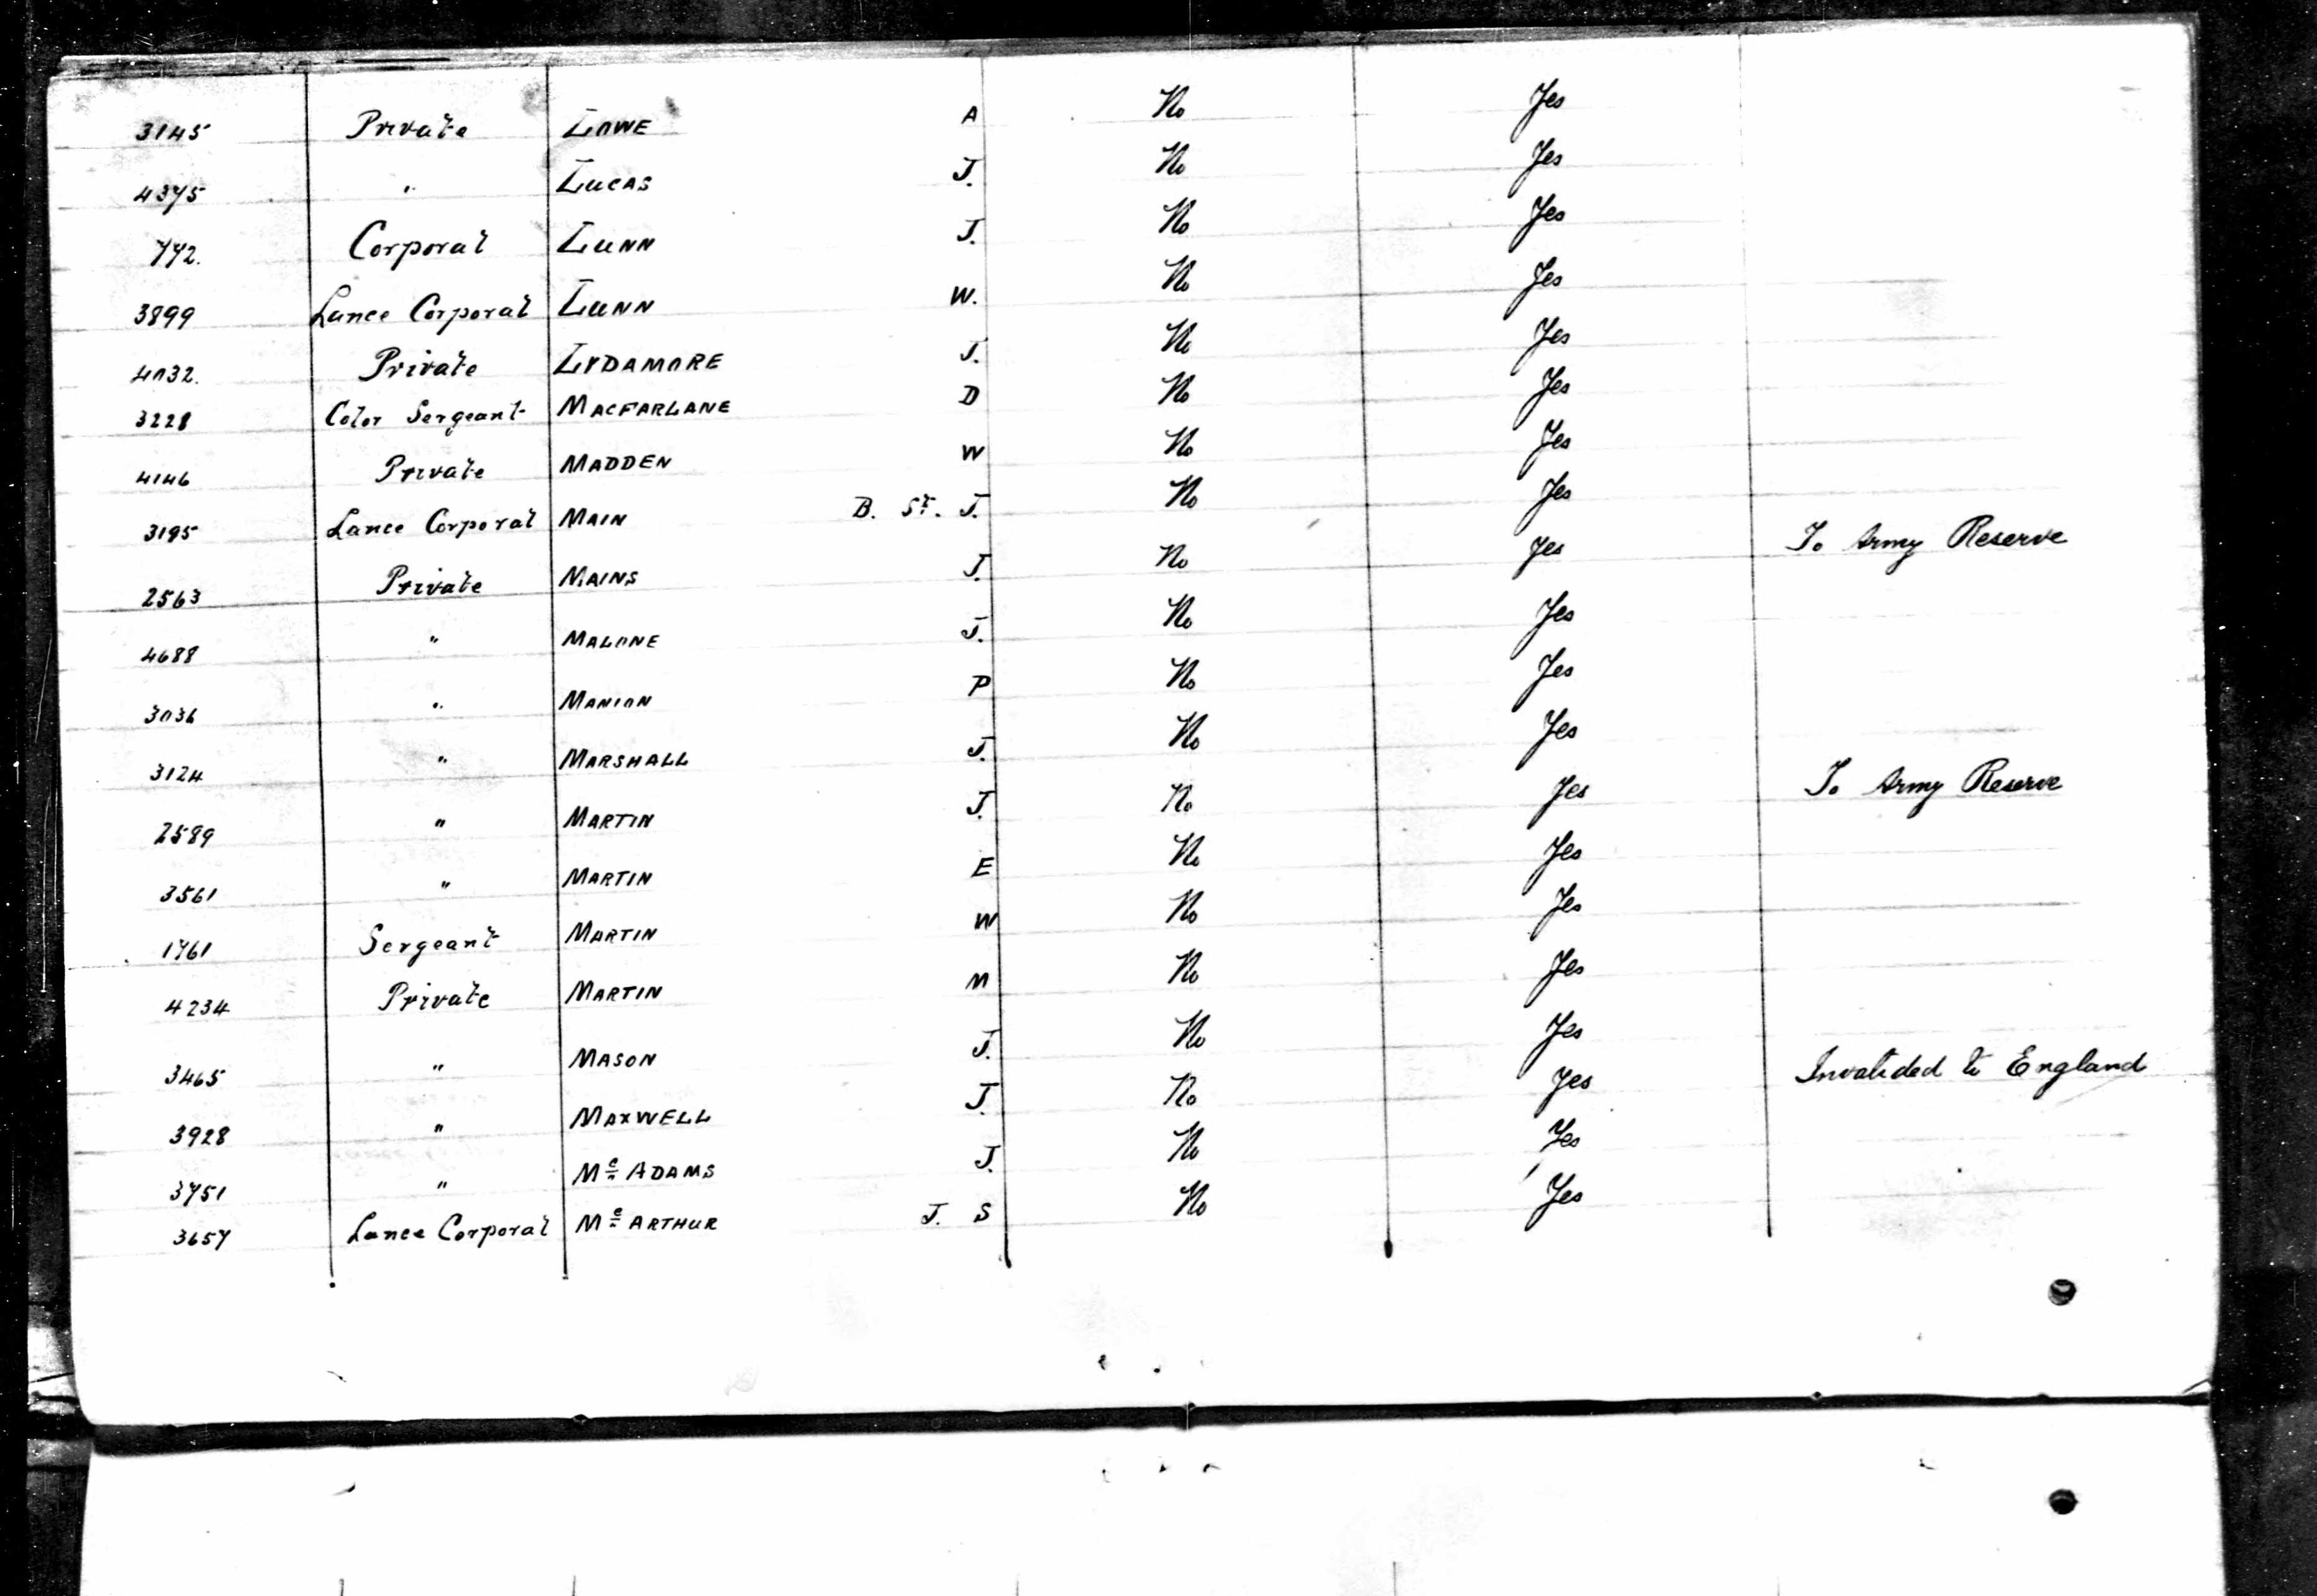 3145 Private LOWE A No Yes
4375 " LUCAS J. No Yes
772. Corporal LUNN J. No Yes
3899 Lance Corporal LUNN W. No Yes
4032. Private LYDAMORE J. No Yes
3228 Color Sergeant MACFARLANE D No Yes
4146 Private MADDEN W No Yes
3195 Lance Corporal MAIN B. St. J. No Yes
2563 Private MAINS J. No Yes To Army Reserve
4688 " MALONE J. No Yes
3036 " MANION P No Yes
3124 " MARSHALL J. No Yes
2589 " MARTIN J. No Yes To Army Reserve
3561 " MARTIN E No Yes
1761 Sergeant MARTIN W No Yes
4234 Private MARTIN M No Yes
3465 " MASON J. No Yes
3928 " MAXWELL J. No Yes Invalided to England
3751 " Mc ADAMS J. No Yes
3657 Lance Corporal Mc ARTHUR J. S No Yes